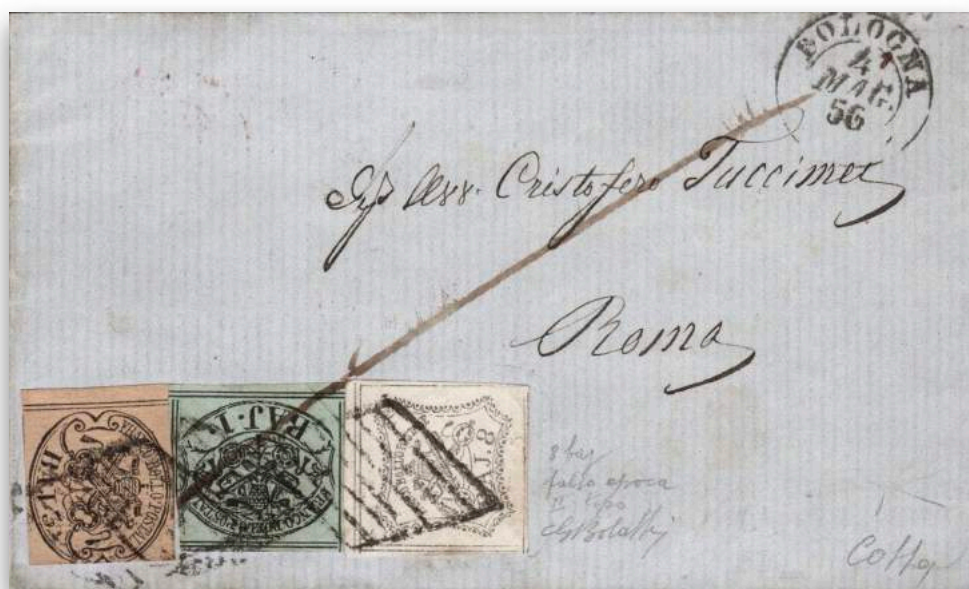 BOLOGNA
4
MAG.
56
Cristofero Tuccimei
Roma
BAJ.
BOLLO POSTALE
BAJ. 1
FRANCO BOLLO POSTALE
BAJ. 8
8 baj
falso epoca
II tipo
GBolaffi